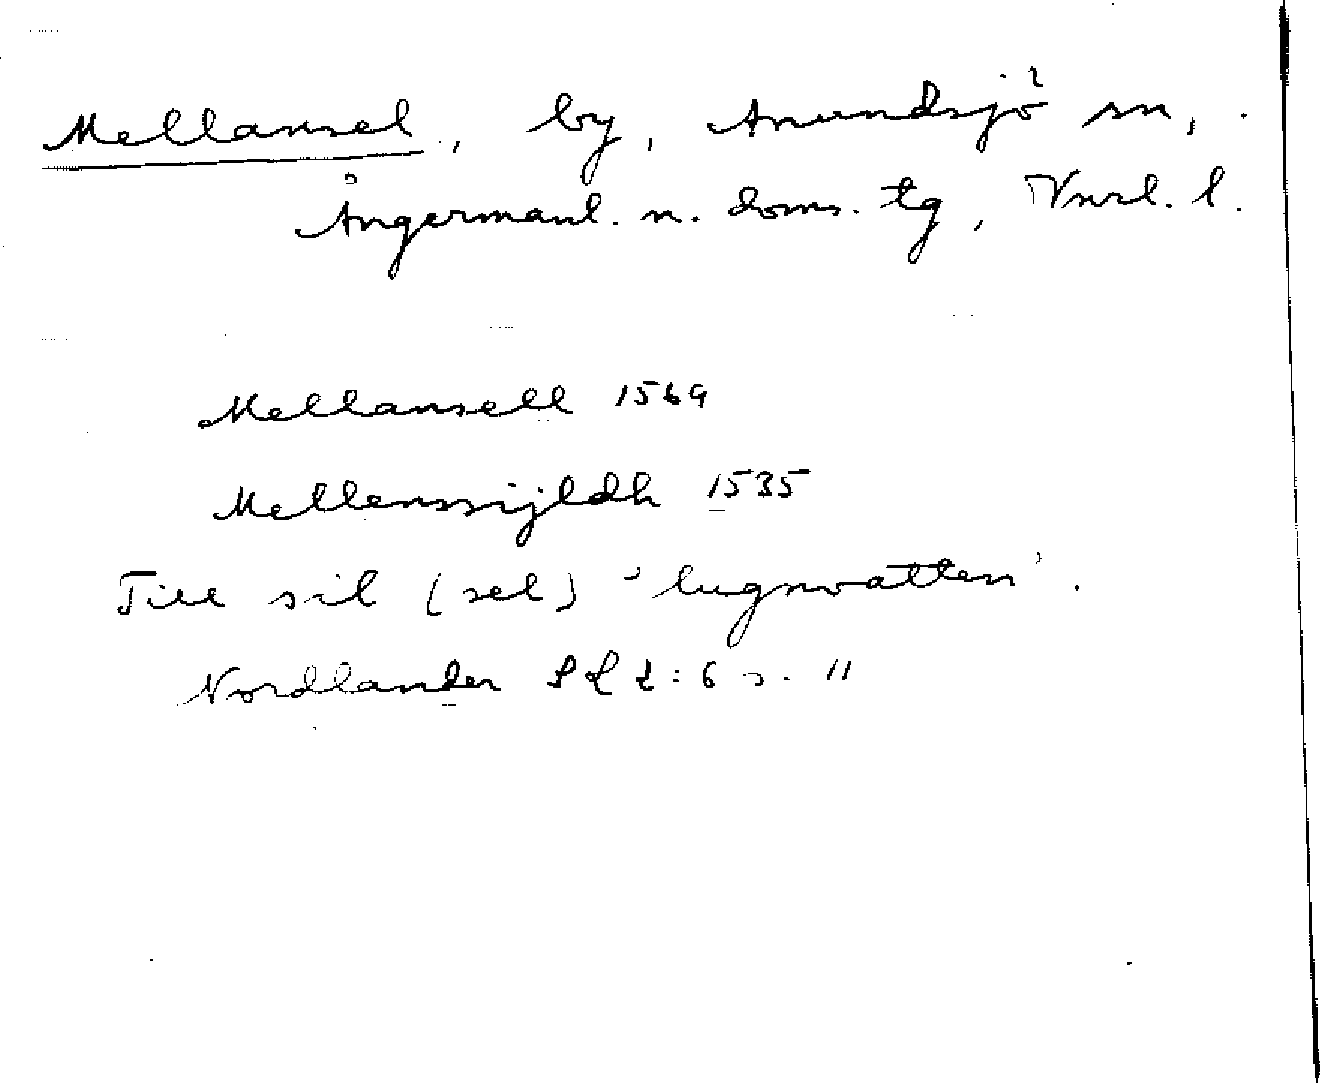 Mellansel, by, Anundsjö sn,
Ångermanl. n. doms. tg, Vnrl. l.
Mellansell 1569
Mellenssijldh 1535
Till sil (sel) 'lugnvatten'.
Nordlander 6 s. 11